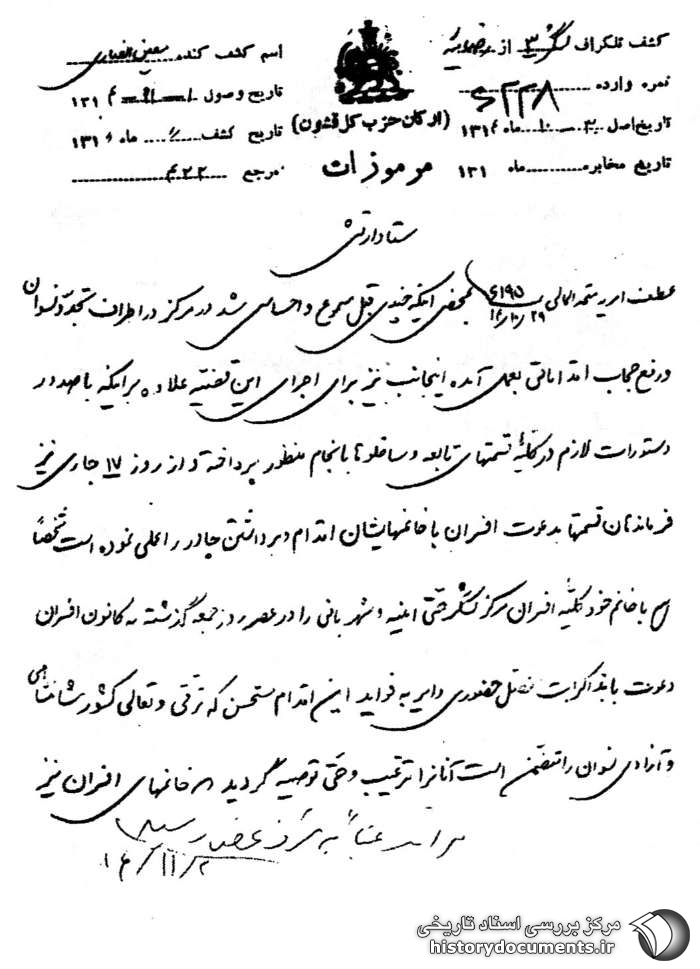 کشف تلگراف لشگر ۳ از رضائیه
نمره وارده ۶۲۳۸
تاریخ اصل ۳۰ ۱۰ ماه ۱۳۱۴
تاریخ مخابره ماه ۱۳۱
(ارکان حزب کل قشون)
مرموزات
اسم کشف کننده
تاریخ وصول ۱۳۱۴
تاریخ کشف ماه ۱۳۱
مرجع ۴۲۲
ستاد ارتش
عطف امریه متحدالمالی ۶۱۹۵ ۱۴/۱۰/۲۹ بمحض اینکه چندی قبل مسموع و احساس شد در مرکز در اطراف تجدد نسوان
و رفع حجاب اقداماتی بعمل آمده اینجانب نیز برای اجرای این قضیه علاوه بر اینکه با صدور
دستورات لازم در کلیهٔ قسمتهای تابعه و ساخلوها بانجام منظور پرداخته و از روز ۱۷ جاری نیز
فرماندهان قسمتها بدعوت افسران با خانمهایشان اقدام و برداشتن چادر را عملی نموده است شخصاً
هم با خانم خود کلیهٔ افسران مرکز لشگر حتی ابنیه و شهربانی را در عصر روز جمعه گذشته به کانون افسران
دعوت با مذاکرات مفصل حضوری دایر به فواید این اقدام مستحسن که ترقی و تعالی کشور شاهنشاهی
و آزادی نسوان را متضمن است آنانرا ترغیب و حتی توصیه گردید که خانمهای افسران نیز
مراتب عیناً به شرف عرض رسید
۱۴/۱۱/۲
مرکز بررسی اسناد تاریخی
historydocuments.ir